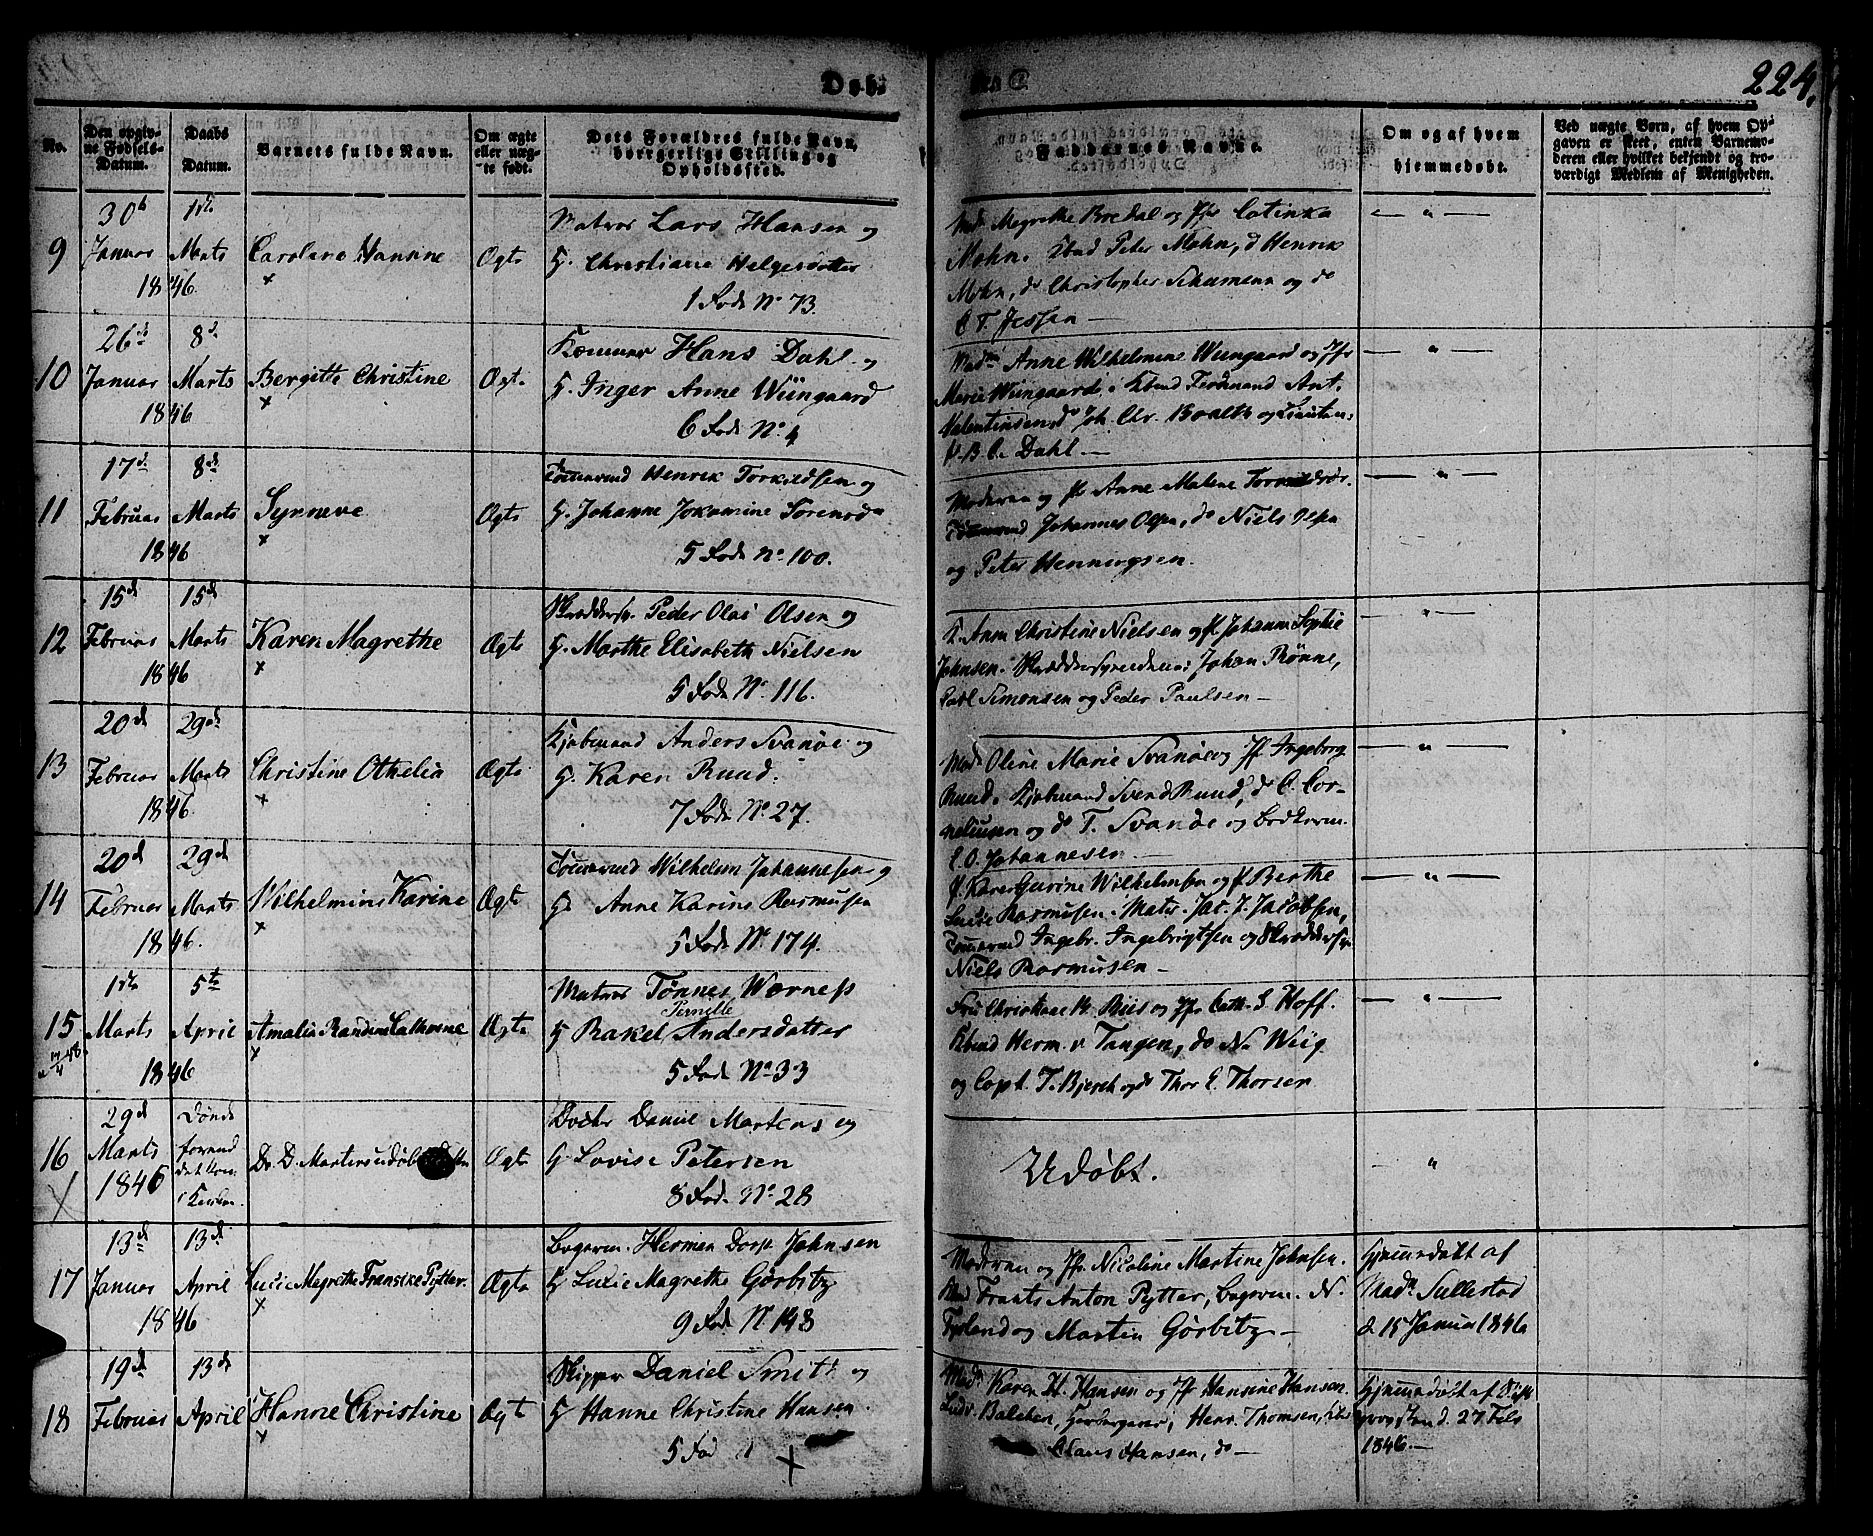 Døb
te C
224.
No.
Den opgiv-
ne Fødsels-
Datum.
Daabs
Datum.
Barnets fulde Navn.
Om ægte
eller uæg-
te født.
Dets Forældres fulde Navn,
borgerlige Stilling og
Opholdssted.
Faddernes Navne.
Om og af hvem
hjemmedøbt.
Ved uægte Børn, af hvem Op-
gaven er skeet, enten Barnemo-
deren eller hvilket bekjendt og tro-
værdigt Medlem af Menigheden.
9
30
Januar
1846.
1
Marts
Caroline Hansine
×
Ægte
Matros Lars Hansen og
H. Christiane Helgesdatter
1 Rode No 73.
Md. Megrethe Bredal og Jfr Catinka
Mohn. Kbmd Peter Mohn, do Henrik
Mohn, do Christopher Schumann og do
C T. Jessen —
— " —
10
26d
Januar
1846
8d
Marts
Bergitte Christine
×
Ægte
Kæmner Hans Dahl og
H. Inger Anne Wiingaard
6 Rode No 4
Mad. Anne Wilhelmine Wiingaard og Jfr
Marie Wiingaard. Kbmd Ferdinand Ant.
Valentinsen, do Joh. Chr. Boalth og Lieuten:
B. C. Dahl —
— " —
11
17d
Februar
1846
8d
Marts
Synneve
×
Ægte
Henrik Torkildsen og
H. Johanne Jokumine Sørensdr
5 Rode No 100.
Moderen og P. Anne Malene
Johannes Olsen, do Niels Olsen
og Peter Henningsen.
— " —
12
15d
Februar
1846
15d
Marts
Karen Magrethe
×
Ægte
Skræddersv. Peder Olai Olsen og
H. Marthe Elisabeth Nielsen
5 Rode No 116.
K. Anne Christine Nielsen og P. Johanne Sophie
Johnsen. Skræddersvendene: Johan Rønne,
Carl Simonsen og Peder Paulsen —
— " —
13
20d
Februar
1846.
29de
Marts
Christine Othelia
×
Ægte
Kjøbmand Anders Svanøe og
H. Karen Ruud.
7 Rode No 27.
Mad. Oline Marie Svanøe og Jf. Ingeborg
Ruud. Kjøbmand Svend Ruud, do C. Cor-
neliussen og do T. Svanøe og
E. O. Johannesen —
— " —
14
20d
Februar
1846.
29de
Marts
Wilhelmine Karine
×
Ægte
Wilhelm Johannesen og
H. Anne Karine Rasmusen
5 Rode No 174.
P. Karen Gurine Wilhelmsen og P. Berthe
Lucie Rasmusen. Matr. Jac. J. Jacobsen,
Ingebr. Ingebrigtsen og Skræddersv.
Niels Rasmusen —
— " —
15
Marts
1846
5te
April
Amalia Randine Cathrine
×
Ægte
Matros Tønnes Wærness
Pernille
H Rakel Andersdatter
5 Rode No 33
Fru Christiane M. Riis og Jfr Cath. S. Hoff.
Kbmd Herm. v. Tangen, do N. Wiig
og Capt. T. Bjerck og do Thor E. Thorsen
— " —
16
29d
Marts
1846
Dr. D. Martens udøbte
Ægte
Doctor Daniel Martens og
H Lovise Petersen
8 Rode No 28
Udøbt.
— "
17
13d
Januar
1846
13d
April
Lucie Magrethe Franscike Pytter.
×
Ægte
Bogøven. Herman Dorp. Johnsen
H Lucie Magrethe Görbitz
9 Rode No 148
Moderen og Jfr. Nicoline Martine Johnsen.
Frants Anton Pytter, Bogøven. N.
og Martin Görbitz —
Hjemmedøbt af
Madm Sullestad
d. 15 Januar 1846
18
19de
Februar
13de
April
Hanne Christine
×
Ægte
Skipper Daniel Smith og
H Hanne Christine Hansen.
5 Rod 1 ×
Mad. Karen H. Hansen og Jfr Hansine Hansen.
Ludv. Balchen, Henr. Thomsen,
Claus Hansen, do —
Hjemmedøbt af
d. 27 Feb
1846.—